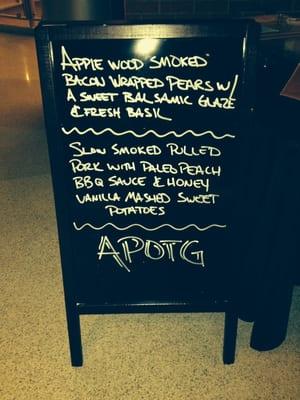 APPLE WOOD SMOKED
BACON WRAPPED PEARS W/
A SWEET BALSAMIC GLAZE
& FRESH BASIL
SLOW SMOKED PULLED
PORK WITH PALEO PEACH
BBQ SAUCE & HONEY
VANILLA MASHED SWEET
POTATOES
APOTG